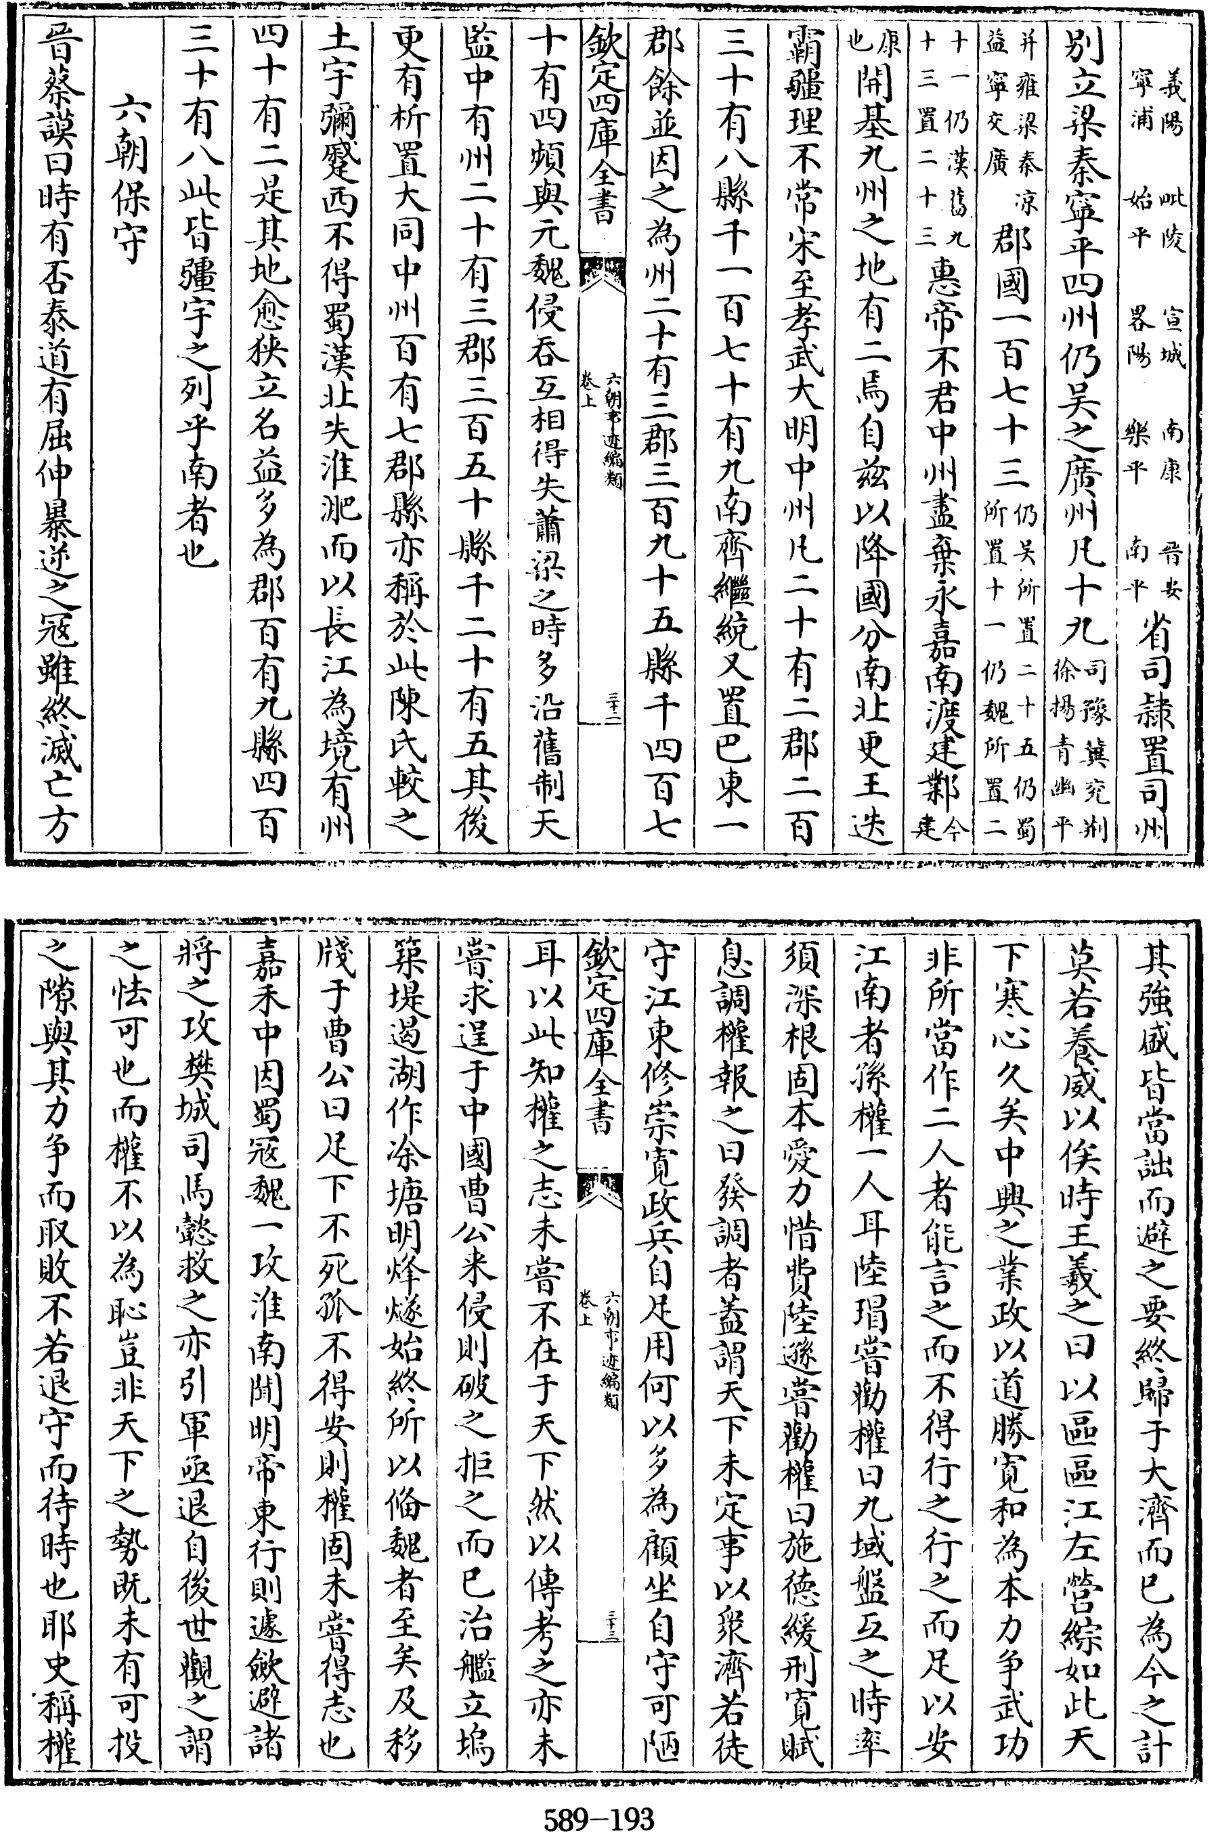 義陽 毗陵 宣城 南康 晉安寧浦 始平 畧陽 樂平 南平省司隸置司州
别立梁秦寧平四州仍吳之廣州凡十九司豫冀兖荆徐揚青幽平
并雍梁秦凉益寧交廣郡國一百七十三仍吳所置二十五仍蜀所置十一仍魏所置二
十一仍漢舊九十三置二十三惠帝不君中州盡棄永嘉南渡建鄴今建
康也開基九州之地有二焉自兹以降國分南北更王迭
霸疆理不常宋至孝武大明中州凡二十有二郡二百
三十有八縣千一百七十有九南齊繼統又置巴東一
郡餘並因之為州二十有三郡三百九十五縣千四百七
欽定四庫全書 六朝事迹編類卷上 三十二
十有四頻與元魏侵吞互相得失蕭梁之時多沿舊制天
監中有州二十有三郡三百五十縣千二十有五其後
更有析置大同中州百有七郡縣亦稱於此陳氏較之
土宇彌蹙西不得蜀漢北失淮淝而以長江為境有州
四十有二是其地愈狹立名益多為郡百有九縣四百
三十有八此皆疆宇之列乎南者也
六朝保守
晉蔡謨曰時有否泰道有屈伸暴逆之冦雖終滅亡方
其強盛皆當詘而避之要終歸于大濟而已為今之計
莫若養威以俟時王羲之曰以區區江左營綜如此天
下寒心久矣中興之業政以道勝寛和為本力争武功
非所當作二人者能言之而不得行之行之而足以安
江南者孫權一人耳陸瑁嘗勸權曰九域盤互之時率
須深根固本愛力惜費陸遜嘗勸權曰施德緩刑寛賦
息調權報之曰發調者蓋謂天下未定事以衆濟若徒
守江東修崇寛政兵自足用何以多為顧坐自守可陋
欽定四庫全書 六朝事迹編類卷上 三十三
耳以此知權之志未嘗不在于天下然以傳考之亦未
嘗求逞于中國曹公来侵則破之拒之而已治艦立塢
築堤遏湖作凃塘明烽燧始終所以備魏者至矣及移
牋于曹公曰足下不死孤不得安則權固未嘗得志也
嘉禾中因蜀冦魏一攻淮南聞明帝東行則遽斂避諸
將之攻樊城司馬懿救之亦引軍亟退自後世觀之謂
之怯可也而權不以為恥豈非天下之勢既未有可投
之隙與其力争而取敗不若退守而待時也耶史稱權
589-193